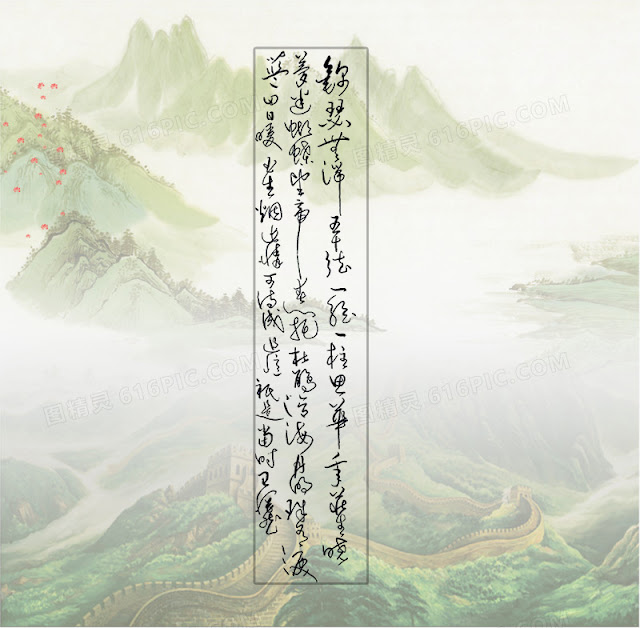 錦瑟無端五十弦一弦一柱思華年莊生曉
夢迷蝴蝶望帝春心托杜鵑滄海月明珠有淚
藍田日暖玉生烟此情可待成追憶祇是當時已惘然
图精灵 616PIC.COM
图精灵 616PIC.COM
图精灵 616PIC.COM
图精灵 616PIC.COM